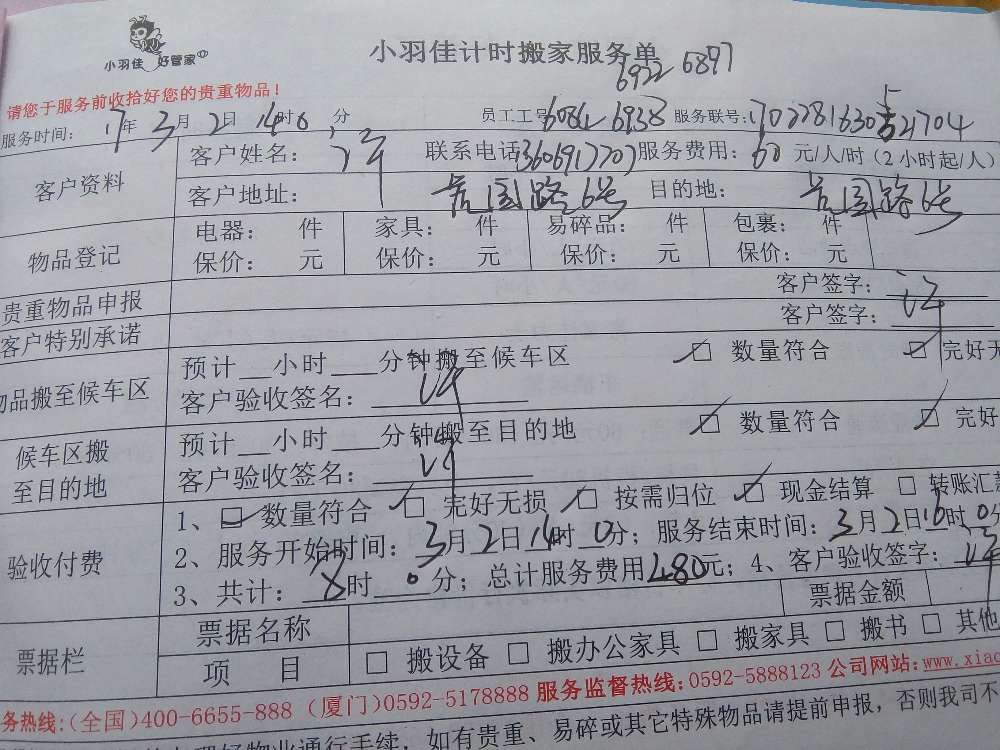 小羽佳 好管家
小羽佳计时搬家服务单
6922 6897
请您于服务前收拾好您的贵重物品！
服务时间： 17年 3月 2日 14时 0分 员工工号 6938 服务联号：
客户资料 客户姓名： 联系电话 13606917707 服务费用： 60 元/人/时（2小时起/人）
客户地址： 路6号 目的地： 路6号
物品登记 电器： 件 家具： 件 易碎品： 件 包裹： 件
保价： 元 保价： 元 保价： 元 保价： 元
贵重物品申报 客户签字：
客户特别承诺 客户签字：
物品搬至候车区 预计__小时___分钟搬至候车区 数量符合 完好无
客户验收签名：
候车区搬至目的地 预计__小时___分钟搬至目的地 数量符合 完好
客户验收签名：
验收付费 1、 数量符合 完好无损 按需归位 现金结算 转账汇
2、服务开始时间：3月2日14时0分；服务结束时间：3月2日16时0分
3、共计：8时0分；总计服务费用480元；4、客户验收签字：
票据栏 票据名称 票据金额
项 目 搬设备 搬办公家具 搬家具 搬书 其他
务热线：(全国)400-6655-888 (厦门)0592-5178888 服务监督热线：0592-5888123 公司网站：www.xiao
理好物业通行手续，如有贵重、易碎或其它特殊物品请提前申报，否则我司不